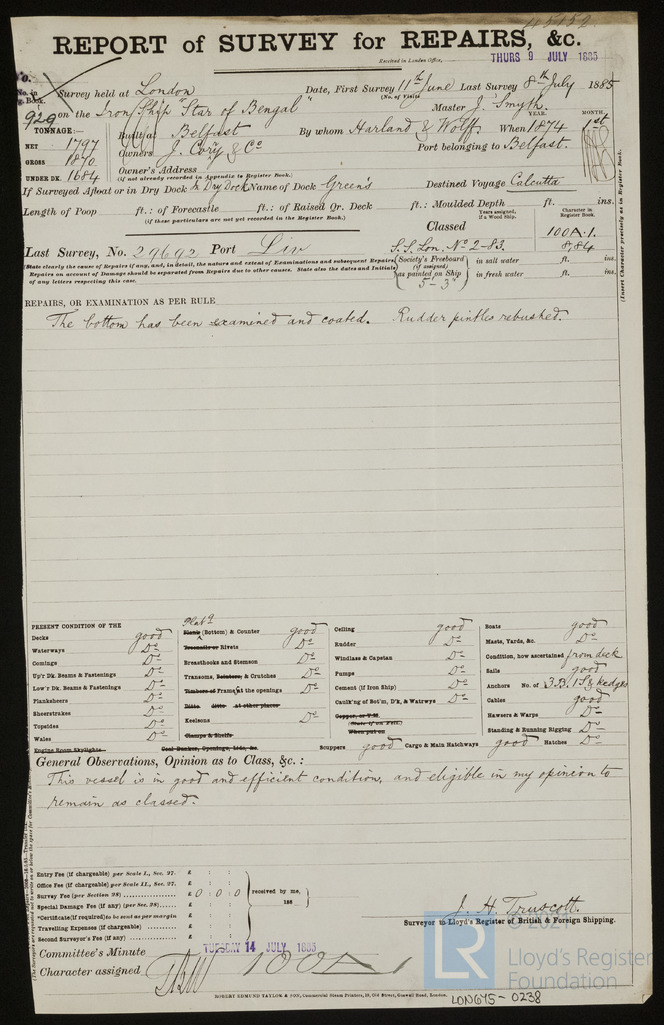 45152
REPORT of SURVEY for REPAIRS, &c.
Received in London Office, THURS 9 JULY 1885
No. in Reg. Book. Survey held at London Date, First Survey 11th June Last Survey 8th July 1885
(No. of Visits
929 on the Iron Ship "Star of Bengal" Master J. Smyth.
TONNAGE:— YEAR. MONTH.
NET 1797 Built at Belfast By whom Harland & Wolff When 1874 1st
GROSS 1870 Owners J. Cory & Co Port belonging to Belfast.
UNDER DK. 1684 Owner's Address
(if not already recorded in Appendix to Register Book.)
If Surveyed Afloat or in Dry Dock In Dry Dock Name of Dock Green's Destined Voyage Calcutta
Length of Poop ft.: of Forecastle ft.: of Raised Qr. Deck ft.: Moulded Depth ft. ins.
(if these particulars are not yet recorded in the Register Book.)
Years assigned, if a Wood Ship. Character in Register Book.
Classed 100A.1.
Last Survey, No. 29692 Port Liv S.S. Lon. No 2-83. 8,84
(State clearly the cause of Repairs if any, and, in detail, the nature and extent of Examinations and subsequent Repairs.
Repairs on account of Damage should be separated from Repairs due to other causes. State also the dates and Initials
of any letters respecting this case.
Society's Freeboard (if assigned) as painted on Ship 5-3" in salt water ft. ins.
in fresh water ft. ins.
(Insert Character precisely as in Register Book.)
REPAIRS, OR EXAMINATION AS PER RULE
The bottom has been examined and coated. Rudder pintles rebushed.
PRESENT CONDITION OF THE
Decks good
Waterways Do
Comings Do
Up'r Dk. Beams & Fastenings Do
Low'r Dk. Beams & Fastenings Do
Planksheers Do
Sheerstrakes Do
Topsides Do
Wales Do
Engine Room Skylights
Plate
Plank (Bottom) & Counter good
Treenails or Rivets Do
Breasthooks and Stemson Do
Transoms, Pointers, & Crutches Do
Timbers of Frame at the openings Do
Ditto ditto at other places
Keelsons Do
Clamps & Shelfs
Coal Bunker, Openings, Lids, &c.
Ceiling good
Rudder Do
Windlass & Capstan Do
Pumps Do
Cement (if Iron Ship) Do
Caulk'ng of Bot'm, D'k, & Watrwys Do
Copper, or Y.M.
(State if on Felt.)
When put on
Scuppers good Cargo & Main Hatchways good Hatches Do
Boats good
Masts, Yards, &c. Do
Condition, how ascertained from deck
Sails good
Anchors No. of 3B. 1S & kedges
Cables good
Hawsers & Warps Do
Standing & Running Rigging Do
General Observations, Opinion as to Class, &c.:
This vessel is in good and efficient condition, and eligible in my opinion to
remain as classed.
Entry Fee (if chargeable) per Scale I., Sec. 27. £ : :
Office Fee (if chargeable) per Scale II., Sec. 27. £ : :
Survey Fee (per Section 28) £ 0 : 0 : 0 received by me,
Special Damage Fee (if any) (per Sec. 28) £ : : 188
*Certificate (if required) to be sent as per margin £ : :
Travelling Expenses (if chargeable) £ : :
Second Surveyor's Fee (if any) £ : :
J. H. Truscott.
Surveyor to Lloyd's Register of British & Foreign Shipping.
Committee's Minute TUESDAY 14 JULY 1885
Character assigned 100A1
ROBERT EDMUND TAYLOR & SON, Commercial Steam Printers, 19, Old Street, Goswell Road, London.
LON675-0238
LR
© 2021
Lloyd's Register
Foundation